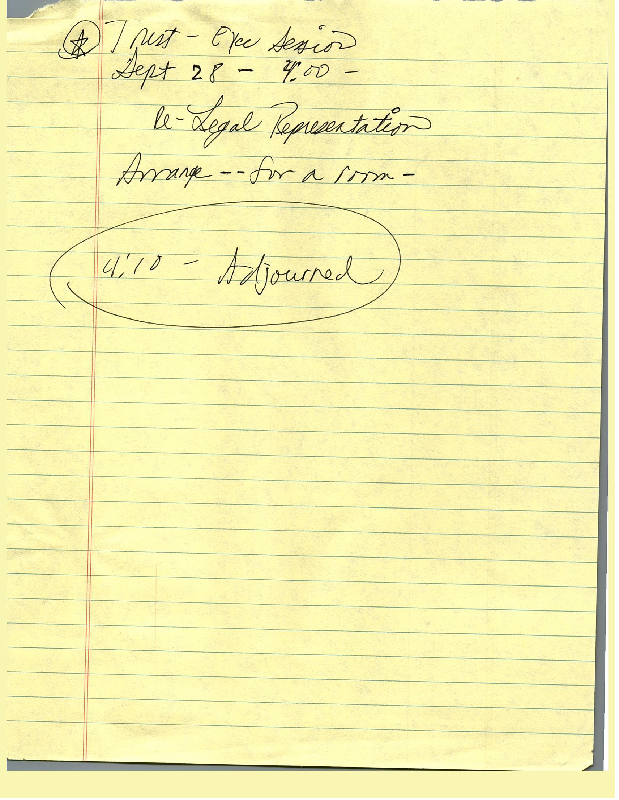 Trust - Exec Session
Sept 28 - 4:00 -
Re - Legal Representation
Arrange -- for a room -
4:10 - Adjourned